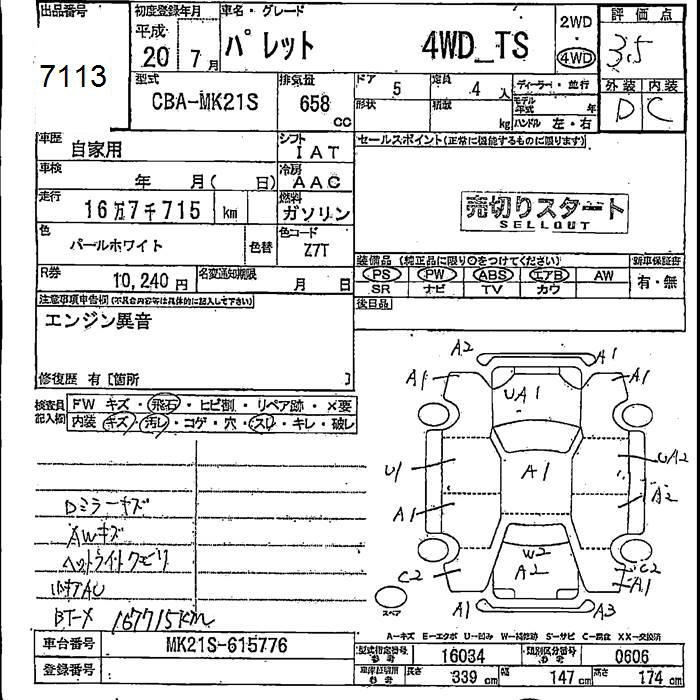 出品番号 7113
初度登録年月 平成 20年 7月
車名・グレード パレット 4WD_TS
2WD
4WD
評価点 3.5
外装 D 内装 C
型式 CBA-MK21S
排気量 658 CC
ドア 5 定員 4 人
ディーラー・並行
形状 積載 kg
モデル年式 年
ハンドル 左・右
車歴 自家用
シフト IAT
車検 年 月( 日)
冷房 AAC
走行 16万7千715 km
燃料 ガソリン
色 パールホワイト 色替
色コード Z7T
R券 10,240円 名変通知期限 月 日
セールスポイント(正常に機能するものに限ります)
売切りスタート
SELLOUT
装備品(純正品に限り○をつけてください)
新車保証書
PS PW ABS エアB AW
SR ナビ TV カワ
有・無
後日品
注意事項申告欄(不具合内容等は具体的に記入して下さい)
エンジン異音
修復歴 有[箇所 ]
検査員記入欄
FW キズ・飛石・ヒビ割・リペア跡・×要
内装 キズ・汚レ・コゲ・穴・スレ・キレ・破レ
Dミラーキズ
AWキズ
ヘッドライトクモリ
BTーメ 167715km
A2 A1
A1 UA1 A1
U1 A1 UA2
A1 A2
W2
C2 A2 C2
A1
A1 A3
スペア
A-キズ E-エクボ U-凹み W-補修跡 S-サビ C-腐食 XX-交換済
車台番号 MK21S-615776
登録番号
型式指定番号 参考 16034 類別区分番号 参考 0606
長さ 339 cm 幅 147 cm 高さ 174 cm